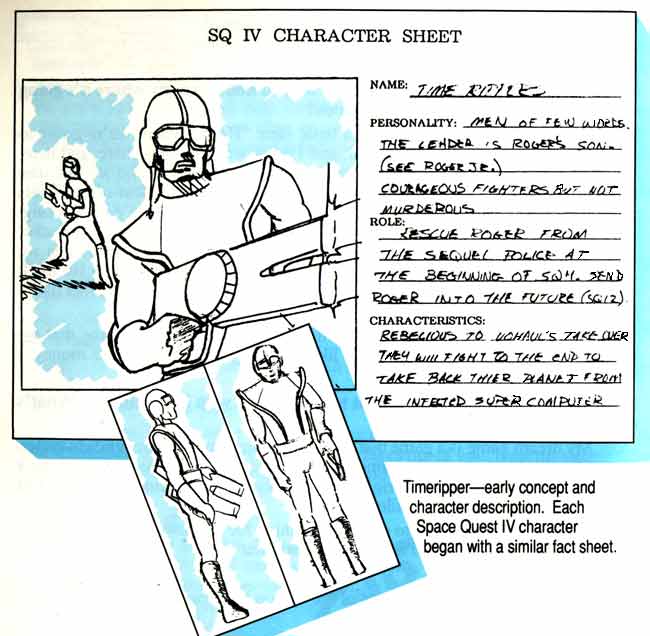 SQ IV CHARACTER SHEET
NAME: TIME RIPPER
PERSONALITY: MEN OF FEW WORDS.
THE LEADER IS ROGER'S SON.
(SEE ROGER JR.)
COURAGEOUS FIGHTERS BUT NOT
MURDEROUS
ROLE:
RESCUE ROGER FROM
THE SEQUEL POLICE AT
THE BEGINNING OF SQ4. SEND
ROGER INTO THE FUTURE (SQ12)
CHARACTERISTICS:
REBELIOUS TO VOHAUL'S TAKE OVER
THEY WILL FIGHT TO THE END TO
TAKE BACK THIER PLANET FROM
THE INFECTED SUPER COMPUTER
Timeripper—early concept and
character description. Each
Space Quest IV character
began with a similar fact sheet.